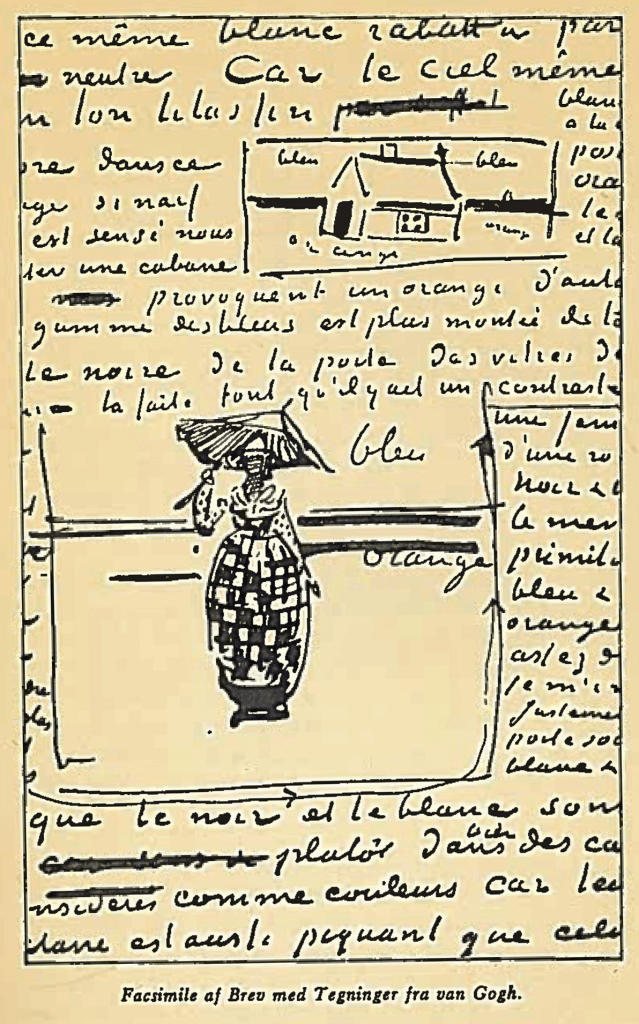 ce même blanc rabattu par
neutre Car le ciel même
n ton lilas fin
blanc
bleu
bleu
re dans ce
age si naïf
est sensé nous
ter une cabane
orange
orange
provoquent un orange d'aut
gamme des bleus est plus montée de
le noire de la porte des vitres de
la faite font qu'il y ait un contraste
bleu
orange
une fem
d'une ro
noir et
le mer
primiti
bleu &
orange
assez d
je m'in
justemen
porte so
blanc &
que le noir et le blanc son
plutôt dans des ca
nsidérés comme couleurs car leu
lane est aussi piquant que celu
Facsimile af Brev med Tegninger fra van Gogh.